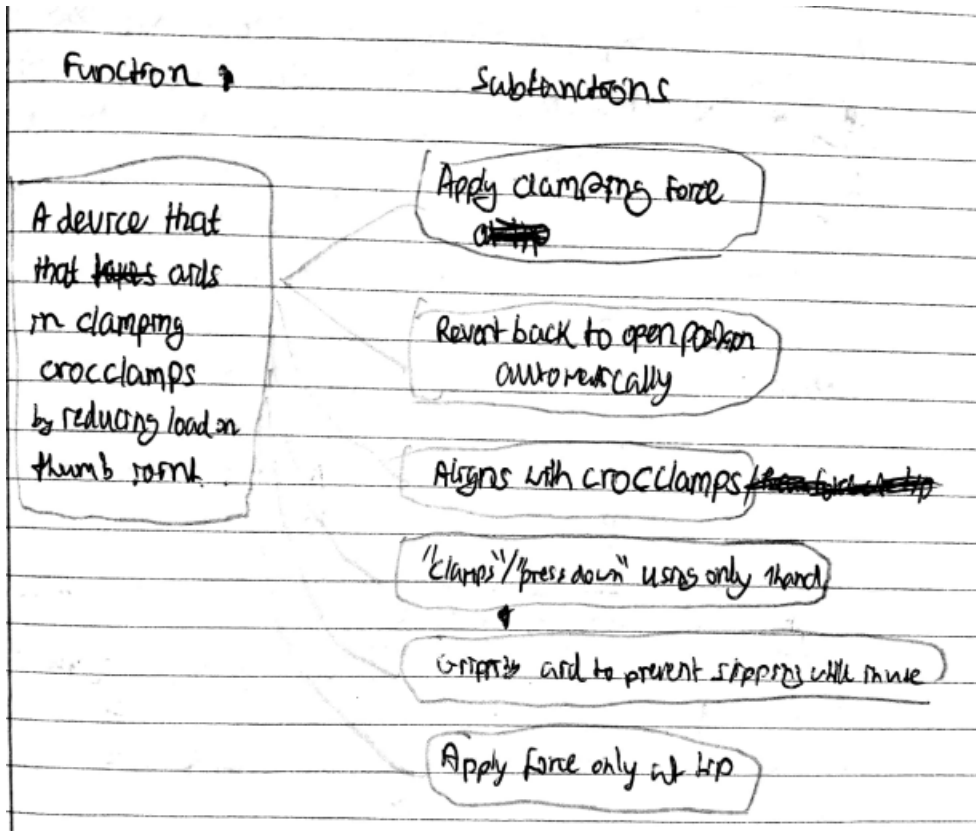 Function
Subfunctions
A device that
that takes aids
in clamping
crocclamps
by reducing load on
thumb joint.
Apply clamping force
Revert back to open position
automatically
Aligns with crocclamps
"clamps"/"press down" using only 1hand
Gripping aid to prevent slipping while in use
Apply force only at tip